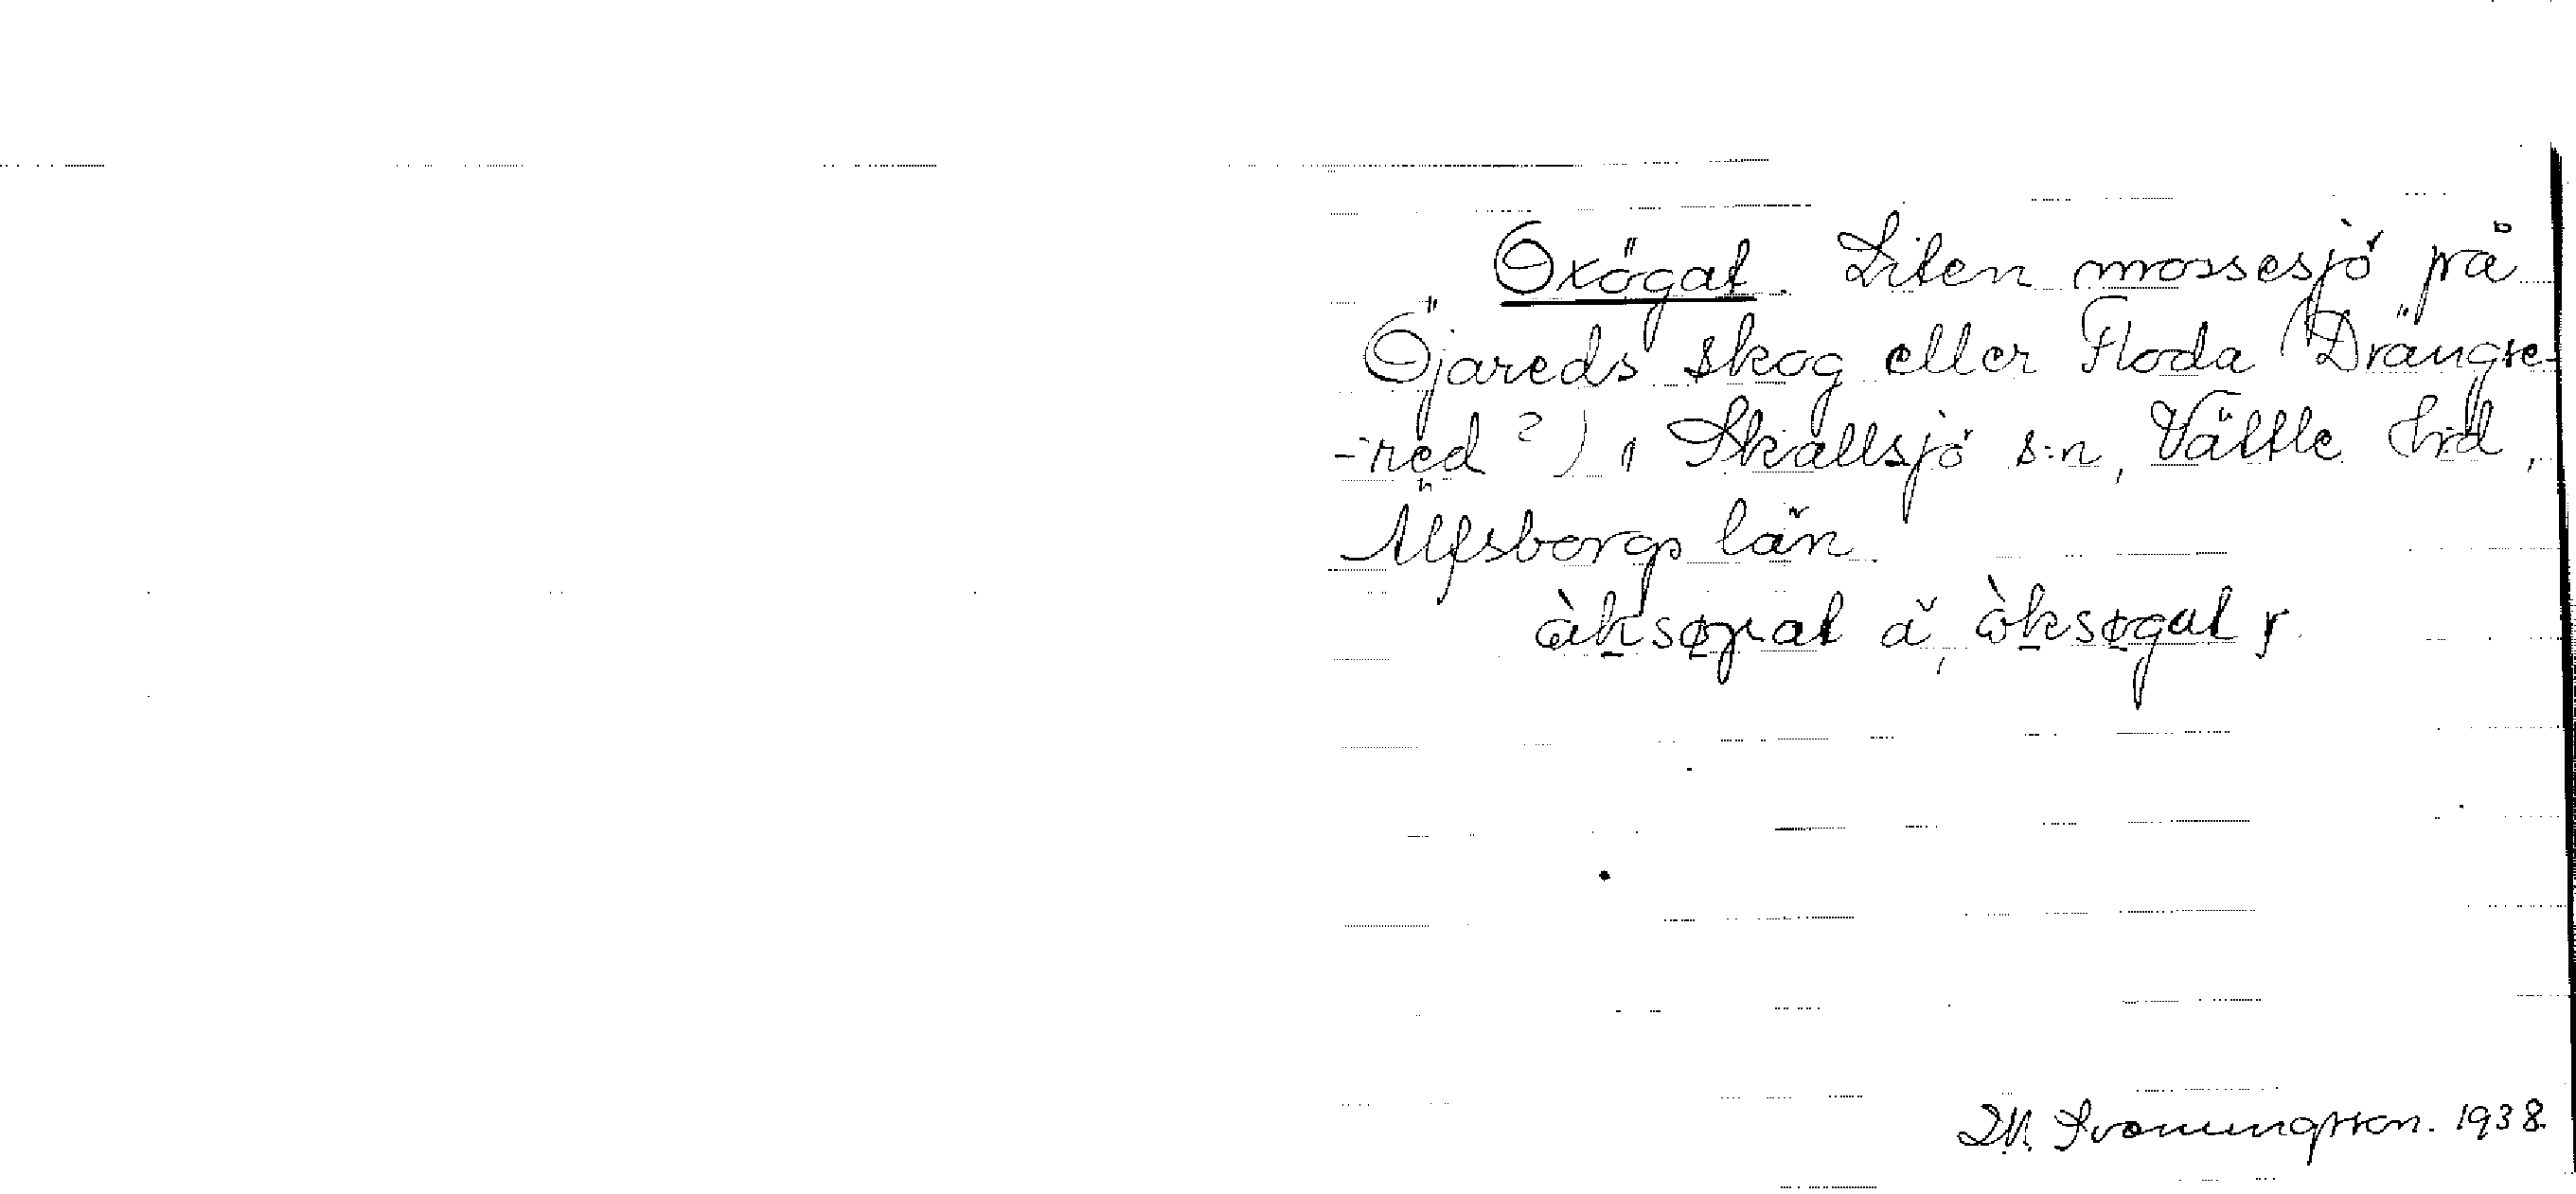 Oxögat. Liten mossesjö på
Öjareds skog eller Floda (Drängse-
-red?), Skallsjö s:n, Vättle hd,
Älfsborgs län.
àksøgat ä, òksøgat r.
1938.